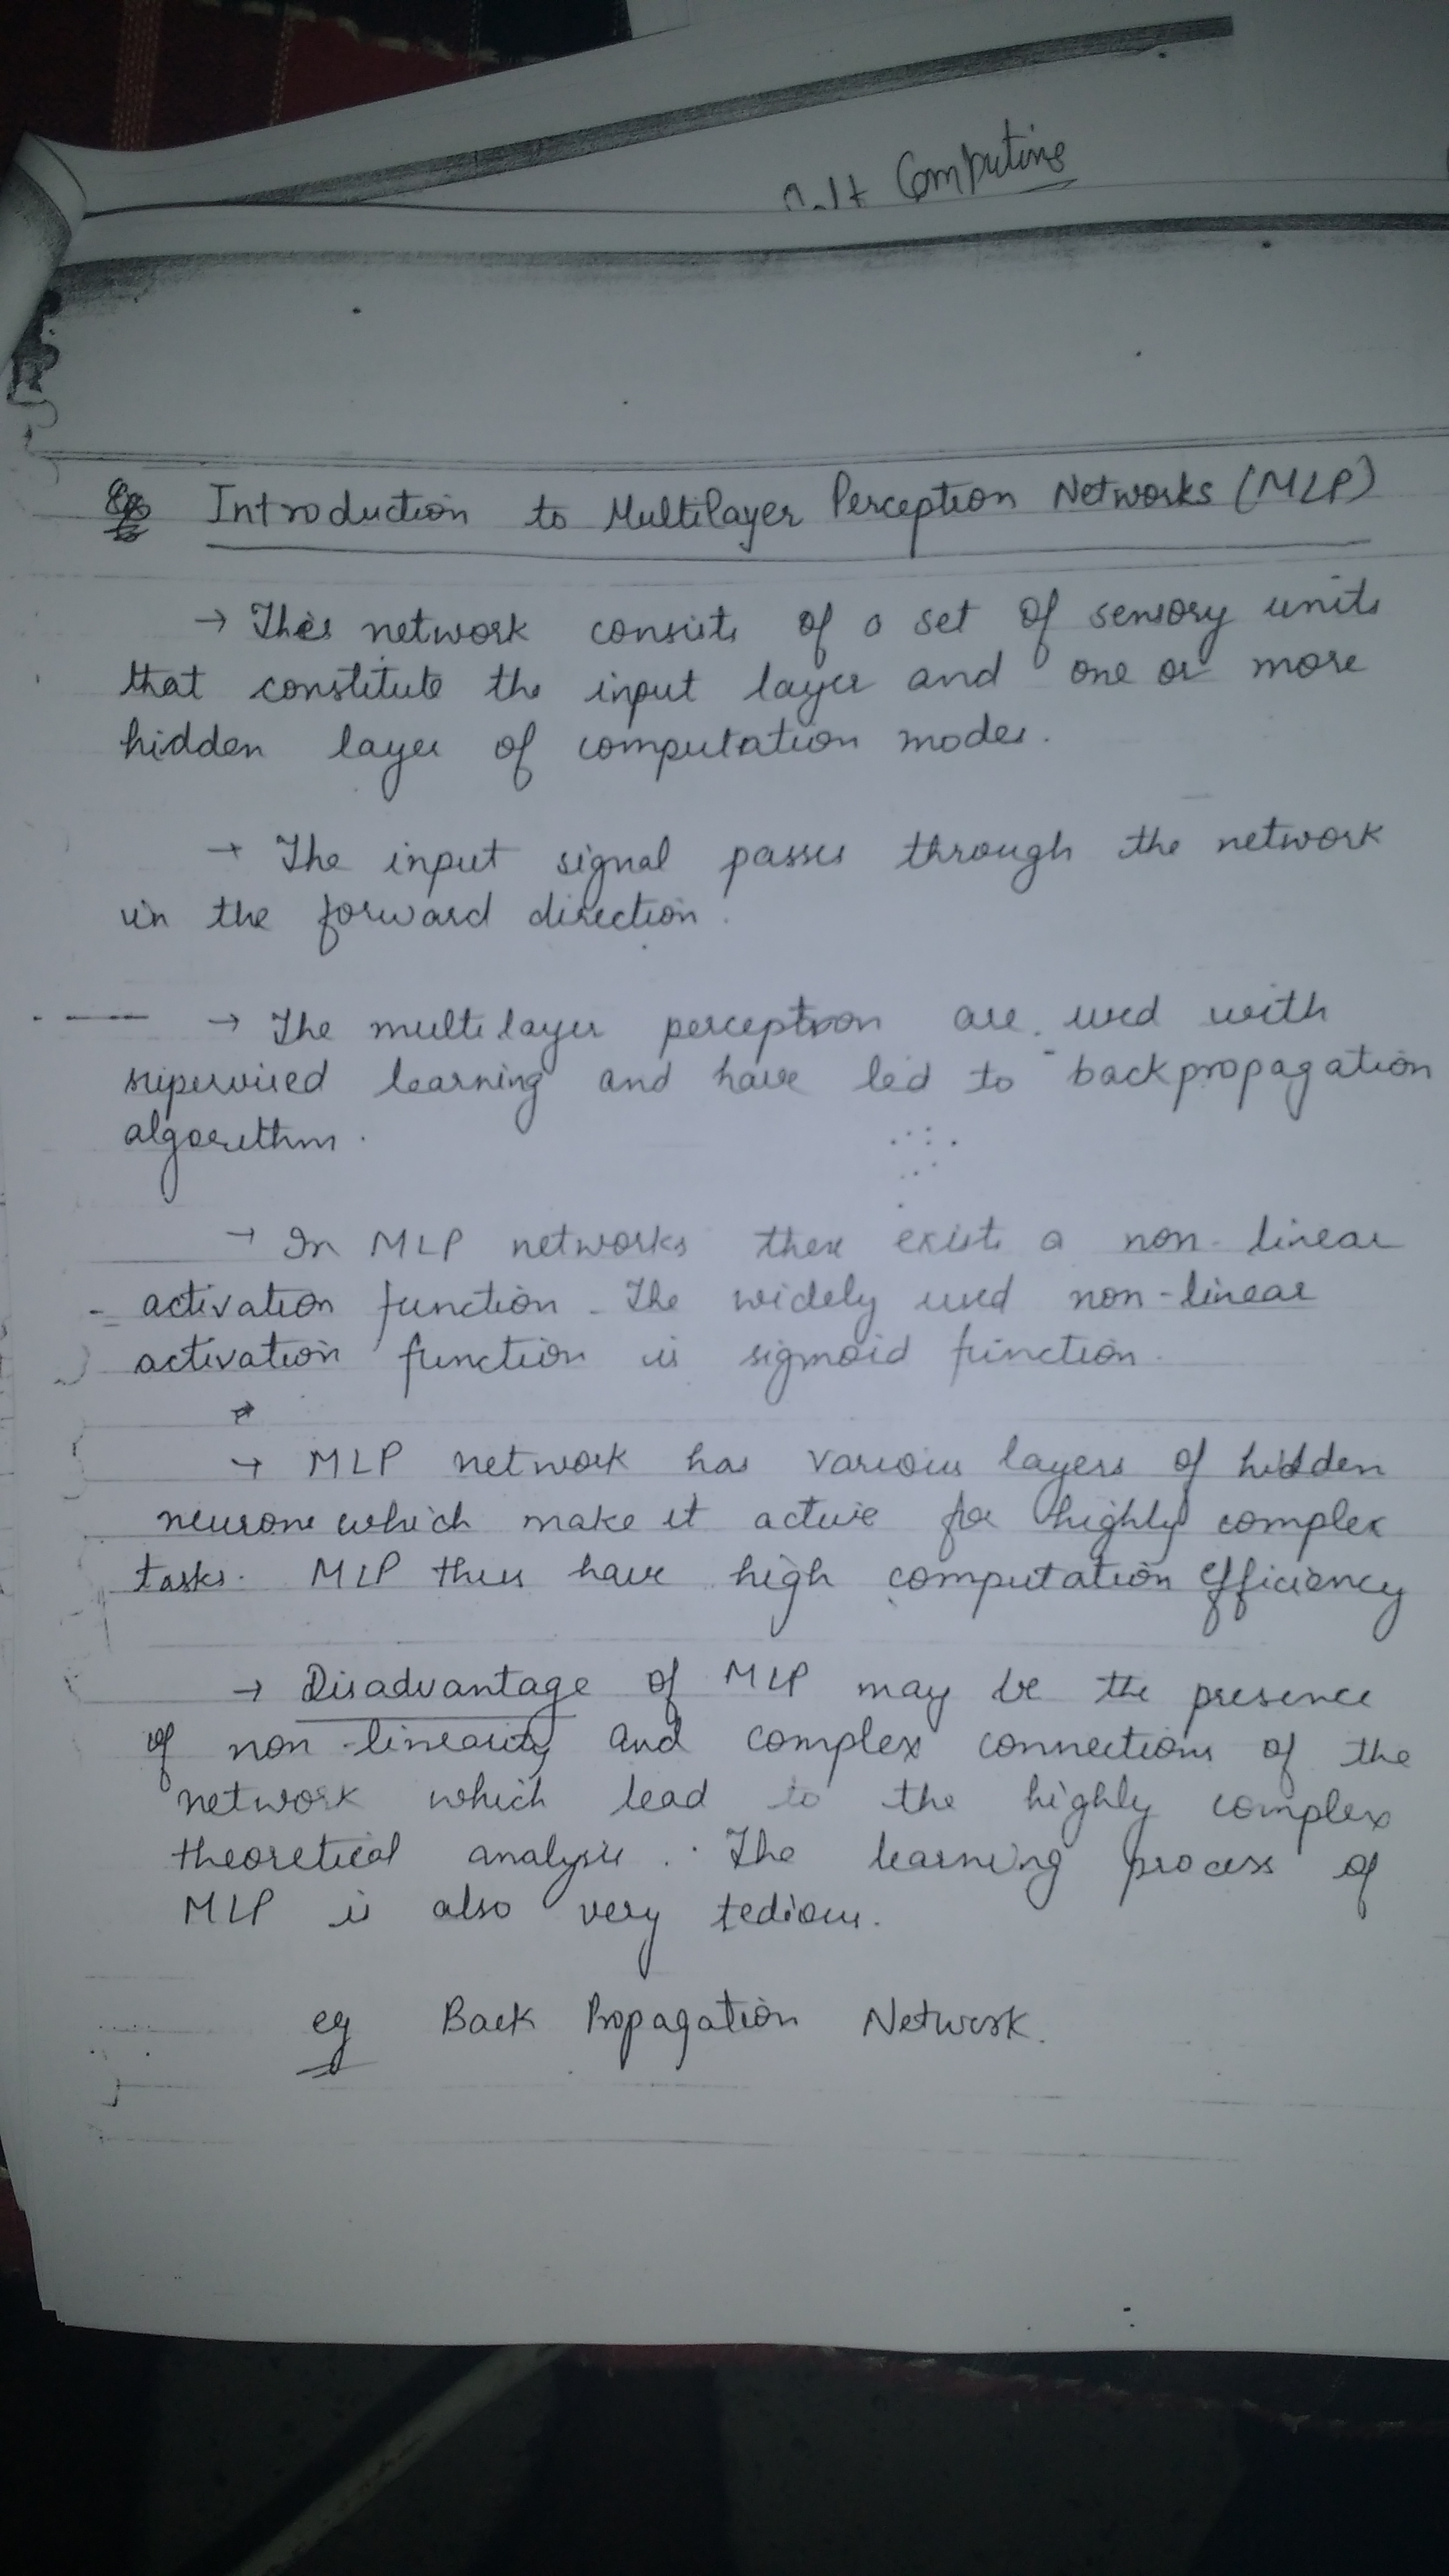 Computing
Introduction to Multilayer Perception Networks (MLP)
→ This network consists of a set of sensory units
that constitute the input layer and one or more
hidden layer of computation modes.
→ The input signal passes through the network
in the forward direction.
→ The multilayer perceptron are used with
supervised learning and have led to backpropagation
algorithm.
→ In MLP networks there exists a non-linear
activation function. The widely used non-linear
activation function is sigmoid function.
→ MLP network has various layers of hidden
neurons which make it active for highly complex
tasks. MLP thus have high computation efficiency
→ Disadvantage of MLP may be the presence
of non-linearity and complex connections of the
network which lead to the highly complex
theoretical analysis. The learning process of
MLP is also very tedious.
eg Back Propagation Network.